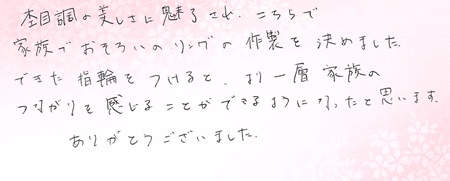 杢目調の美しさに魅了され、こちらで
家族でおそろいのリングの作製を決めました。
できた指輪をつけると、より一層家族の
つながりを感じることができるようになったと思います。
ありがとうございました。